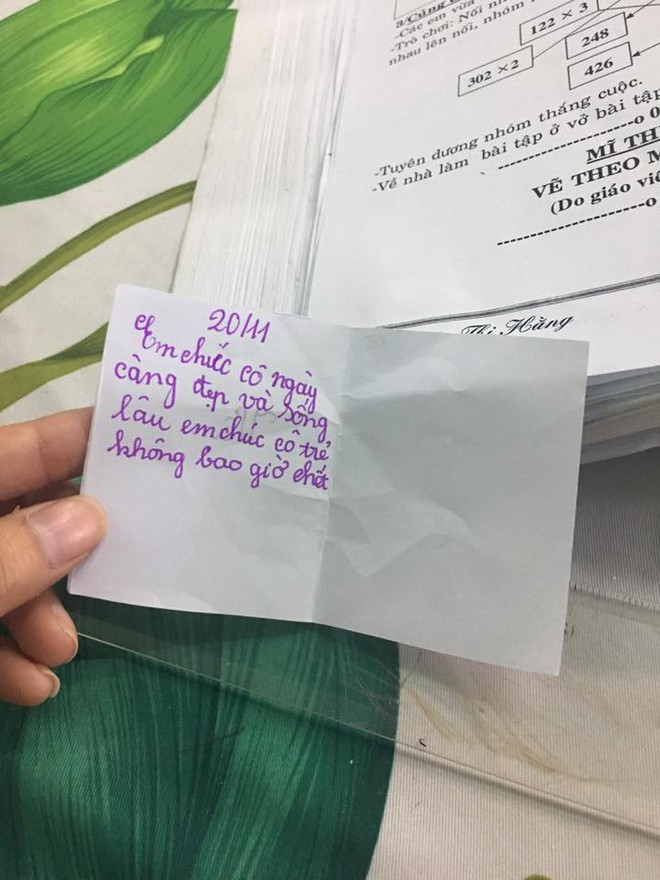 3/Củng c
-Các em vừa
-Trò chơi: Nối nh
nhau lên nối, nhóm
122 × 3
302 ×2
248
426
-Tuyên dương nhóm thắng cuộc.
-Về nhà làm bài tập ở vở bài tập
-----------------o 0
MĨ TH
VẼ THEO M
(Do giáo viê
-----------------o
Thị Hằng
20/11
Em chúc cô ngày
càng đẹp và sống
lâu em chúc cô trẻ
không bao giờ chết